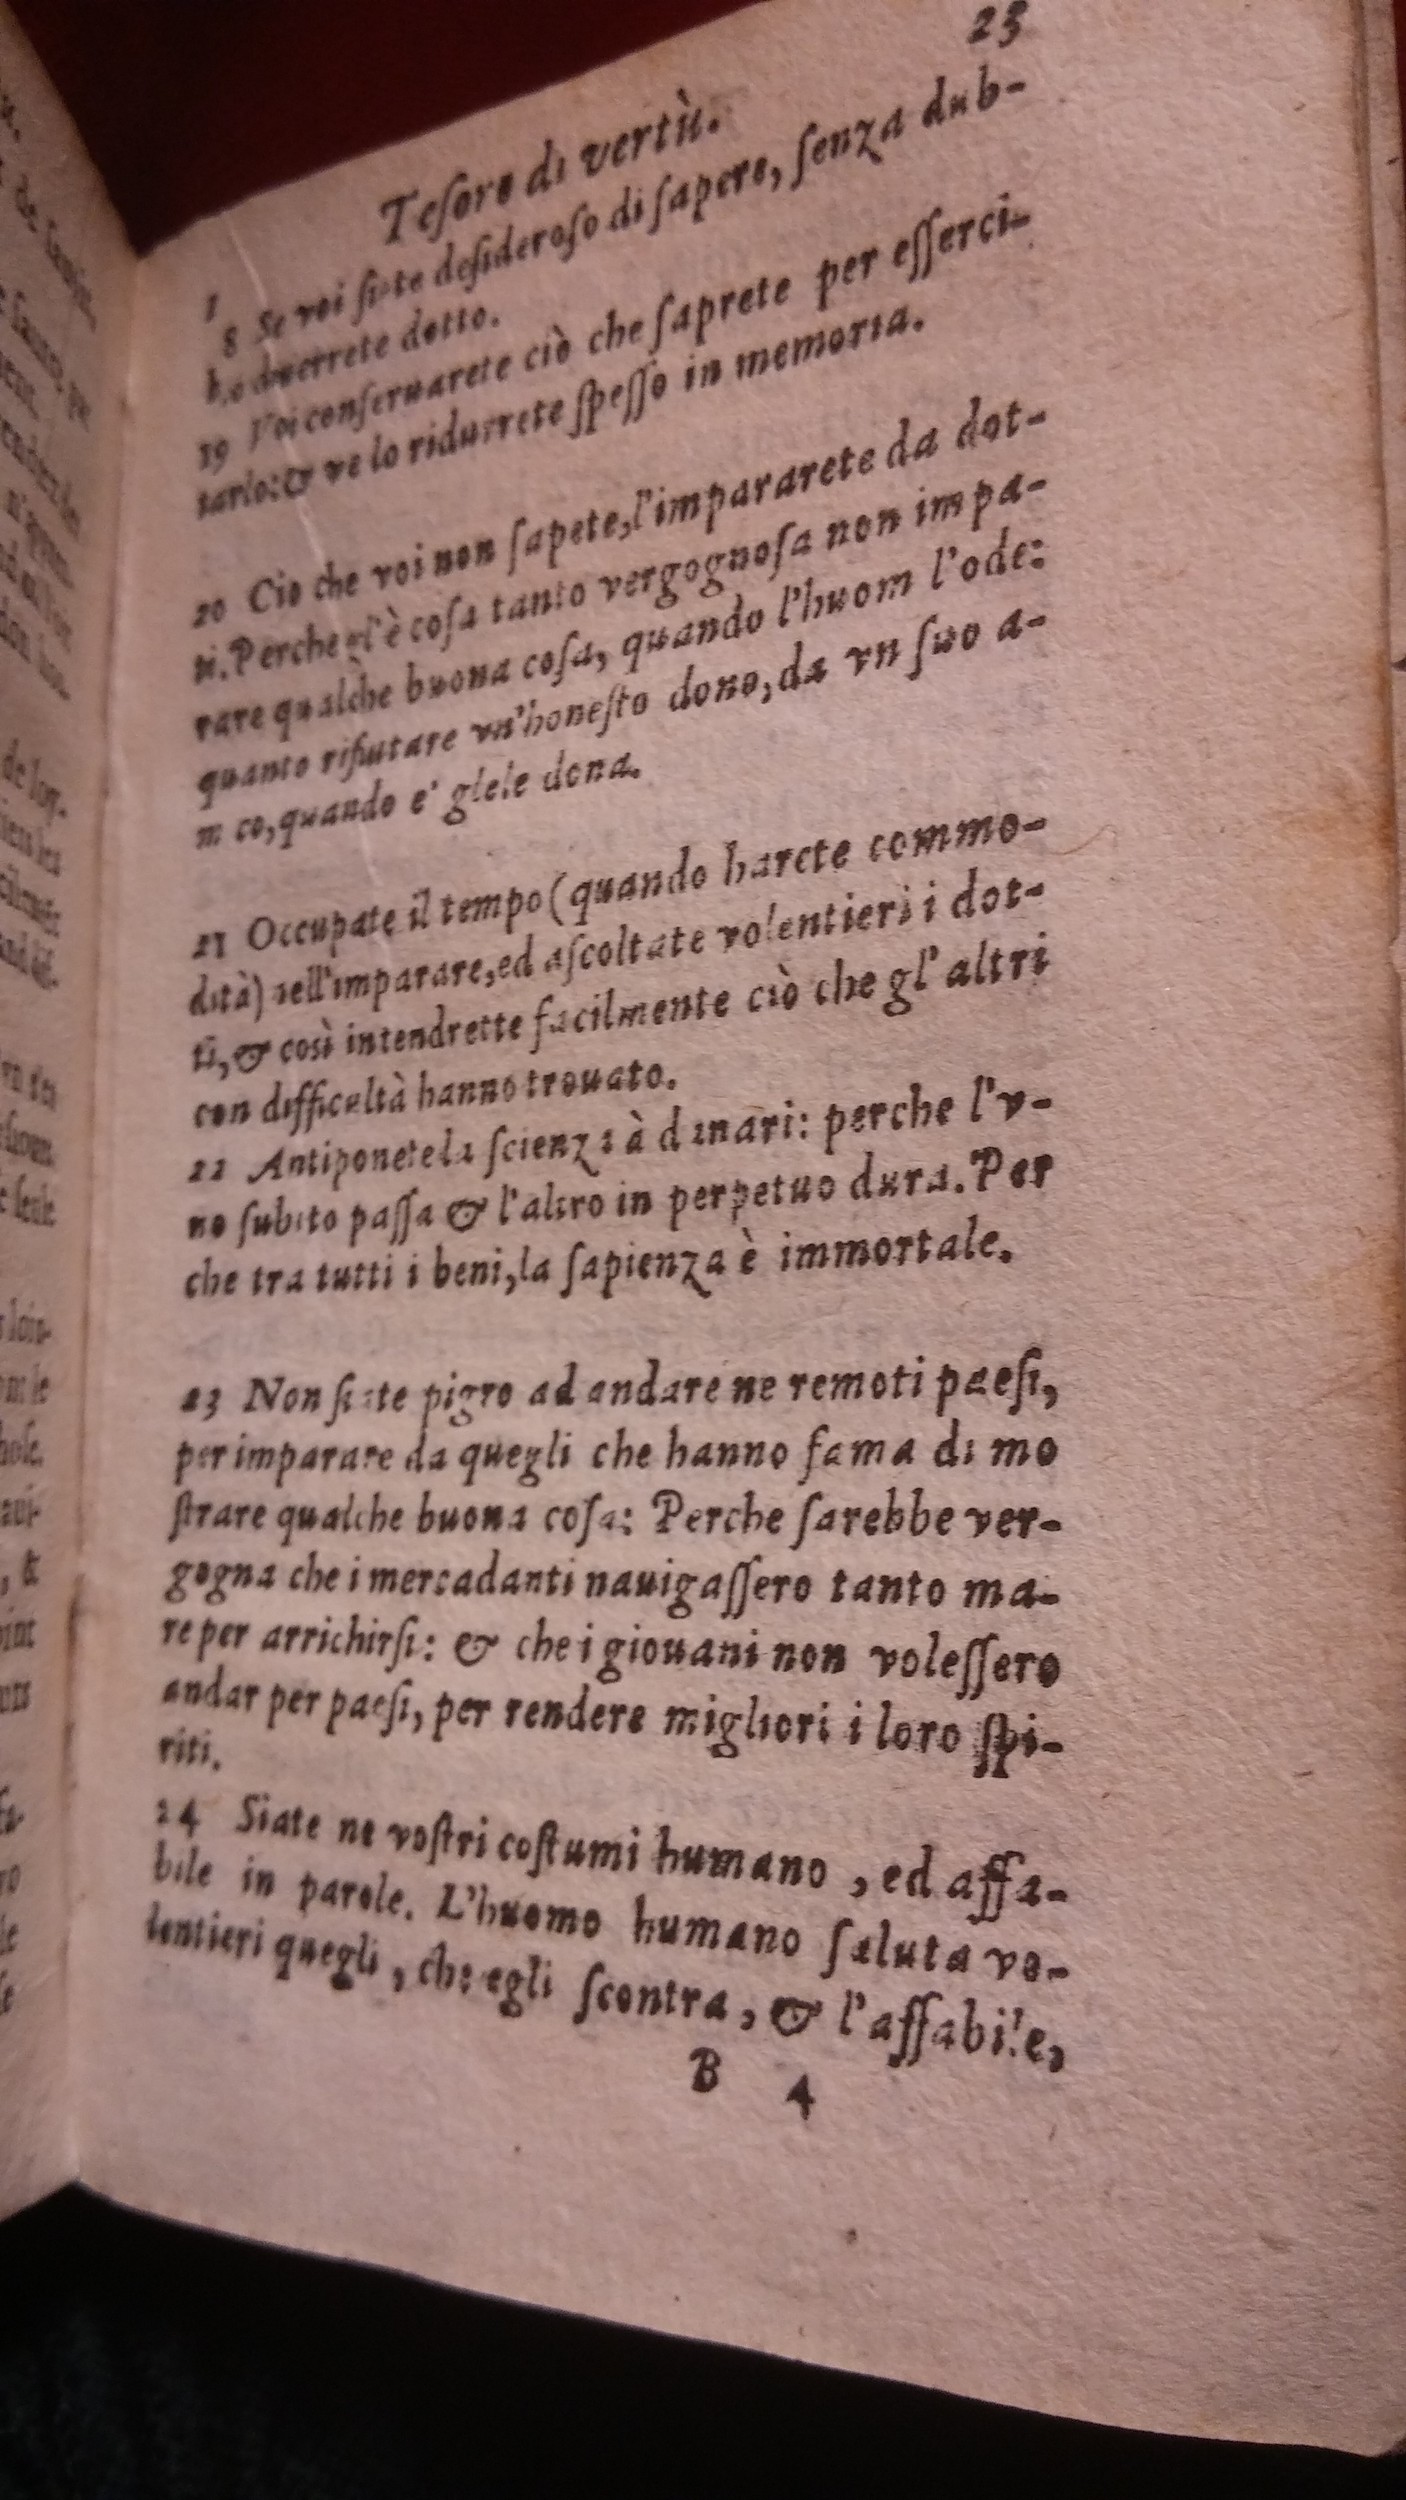 23
Tesoro di vertù.
1
8 Se voi siate desideroso di sapere, senza dub-
b.o divverrete dotto.
19 Voi conseruarete ciò che saprete per esserci-
tarlo: & ve lo ridurrete spesso in memoria.
20 Cio che voi non sapete, l'impararete da dot-
ti. Perche gl'è cosa tanto vergognosa non impa-
rare qualche buona cosa, quando l'huom l'ode:
quanto rifiutare vn'honesto dono, da vn suo a-
m co, quando e' glele dona.
21 Occupate il tempo (quando harete commo-
dità) nell'imparare, ed ascoltate volentieri i dot-
ti, & così intendrette facilmente ciò che gl'altri
con difficultà hanno trouato.
22 Antiponete la scienza à danari: perche l'v-
no subito passa & l'altro in perpetuo dura. Per
che tra tutti i beni, la sapienza è immortale.
23 Non siate pigro ad andare ne remoti paesi,
per imparare da quegli che hanno fama di mo
strare qualche buona cosa: Perche sarebbe ver-
gogna che i mercadanti nauigassero tanto ma-
re per arrichirsi: & che i giouani non volessero
andar per paesi, per rendere migliori i loro spi-
riti.
24 Siate ne vostri costumi humano, ed affa-
bile in parole. L'huomo humano saluta vo-
lentieri quegli, che egli scontra, & l'affabile,
B 4